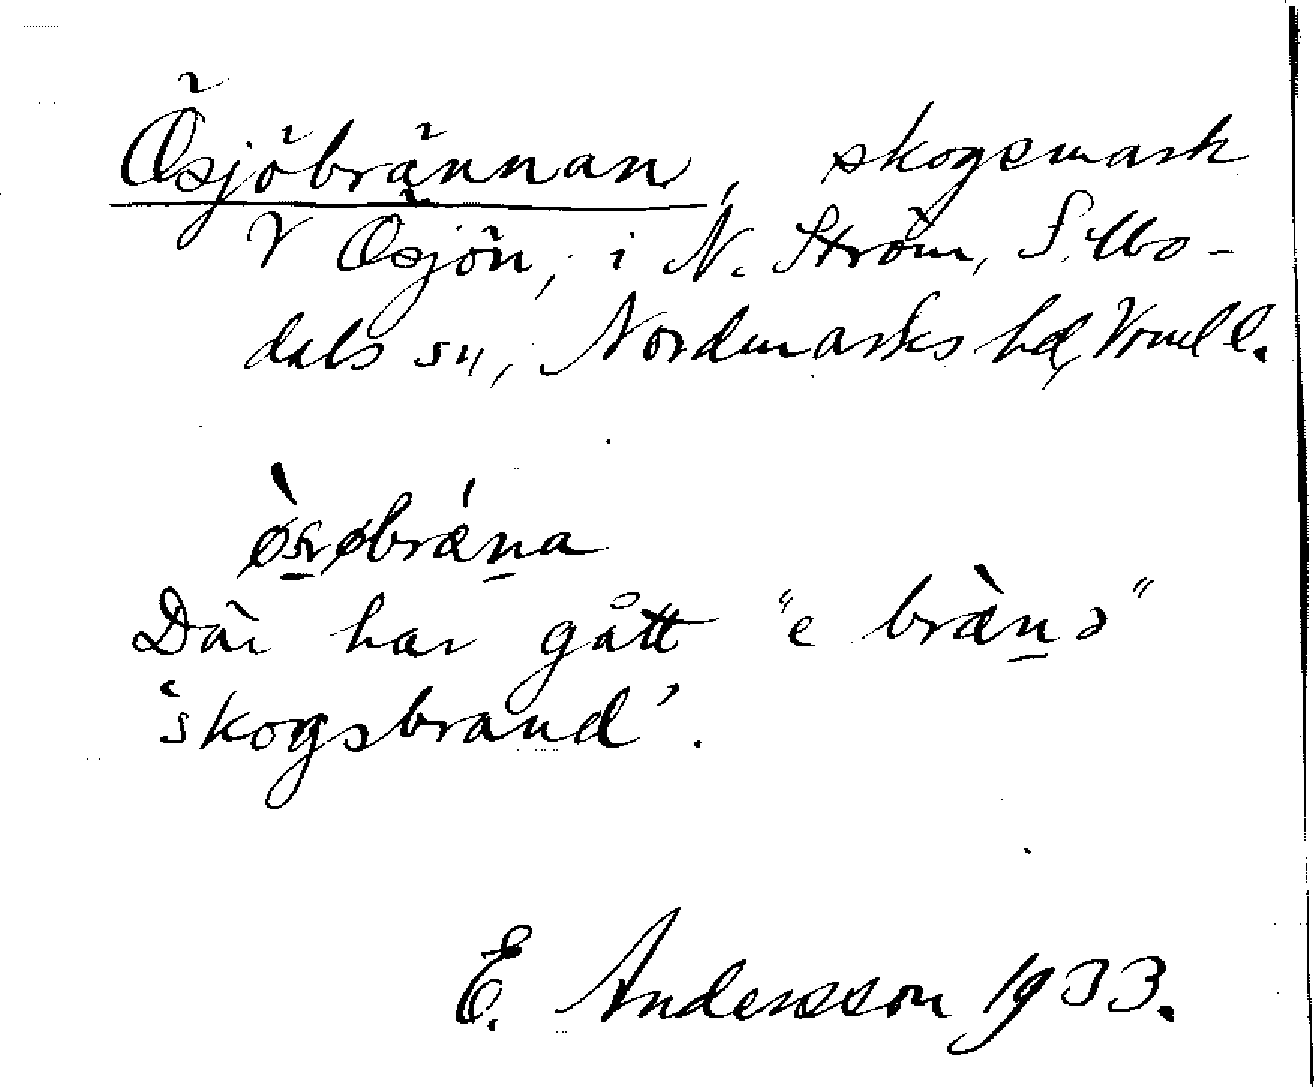 Ösjöbrännan, skogsmark
V Ösjön, i N. Ström, Sillbo-
dals sn, Nordmarks hd, Vrml l.
Där har gått "e
'skogsbrand'.
E. Andersson 1933.